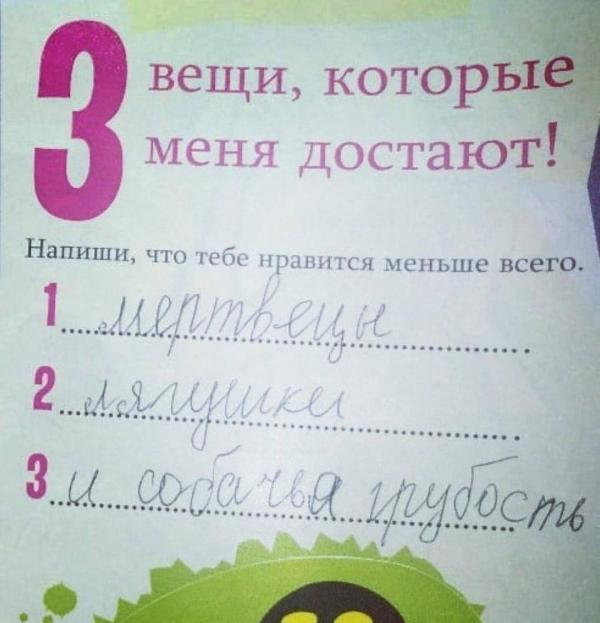 3 вещи, которые
меня достают!
Напиши, что тебе нравится меньше всего.
1 мертвецы
2 лягушки
3 и собачья грубость